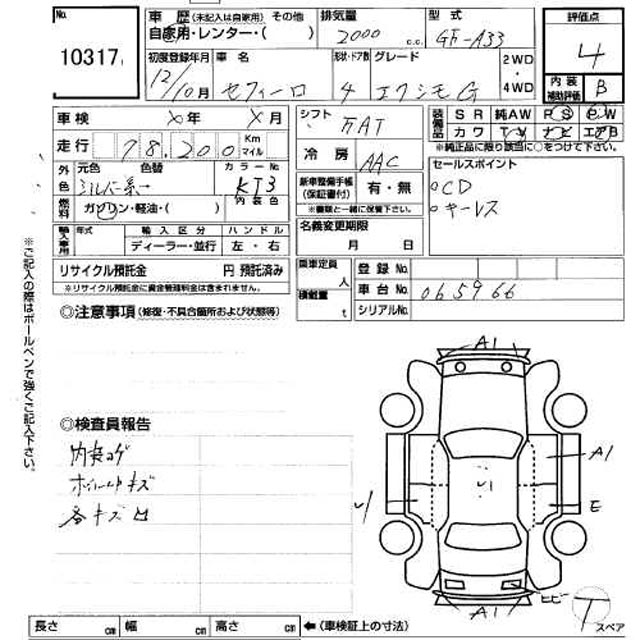 No.
10317
車歴 (未記入は自家用) その他
自家用・レンター・( )
排気量
2000 c.c.
型式
GF-A33
評価点
4
内装補助評価 B
初度登録年月
12/10月
車名
セフィーロ
形状・ドア数
4
グレード
エクシモG
2WD
・
4WD
車検 ×年 ×月
シフト
FAT
装備品
SR 純AW PS PW
カワ TV ナビ エアB
※純正品に限り該当に○をつけて下さい。
走行 78.200 Km マイル
冷房 AAC
セールスポイント
○CD
○キーレス
外色
元色 色替
シルバー系
カラーNo.
KY3
新車整備手帳
(保証書付)
有・無
※書類と一緒に保管して下さい。
燃料
ガソリン・軽油・( )
内装色
名義変更期限
月 日
輸入車用
年式
輸入区分
ハンドル
ディーラー・並行
左・右
リサイクル預託金 円 預託済み
※リサイクル預託金に資金管理料金は含まれません。
乗車定員 人
積載量 t
登録No.
車台No. 065966
シリアルNo.
◎注意事項 (修復・不具合箇所および状態等)
※ご記入の際はボールペンで強くご記入下さい。
◎検査員報告
内装コゲ
ホイールキズ
各キズ凹
A1
A1
U1
E
A1
T
スペア
長さ cm 幅 cm 高さ cm
←(車検証上の寸法)